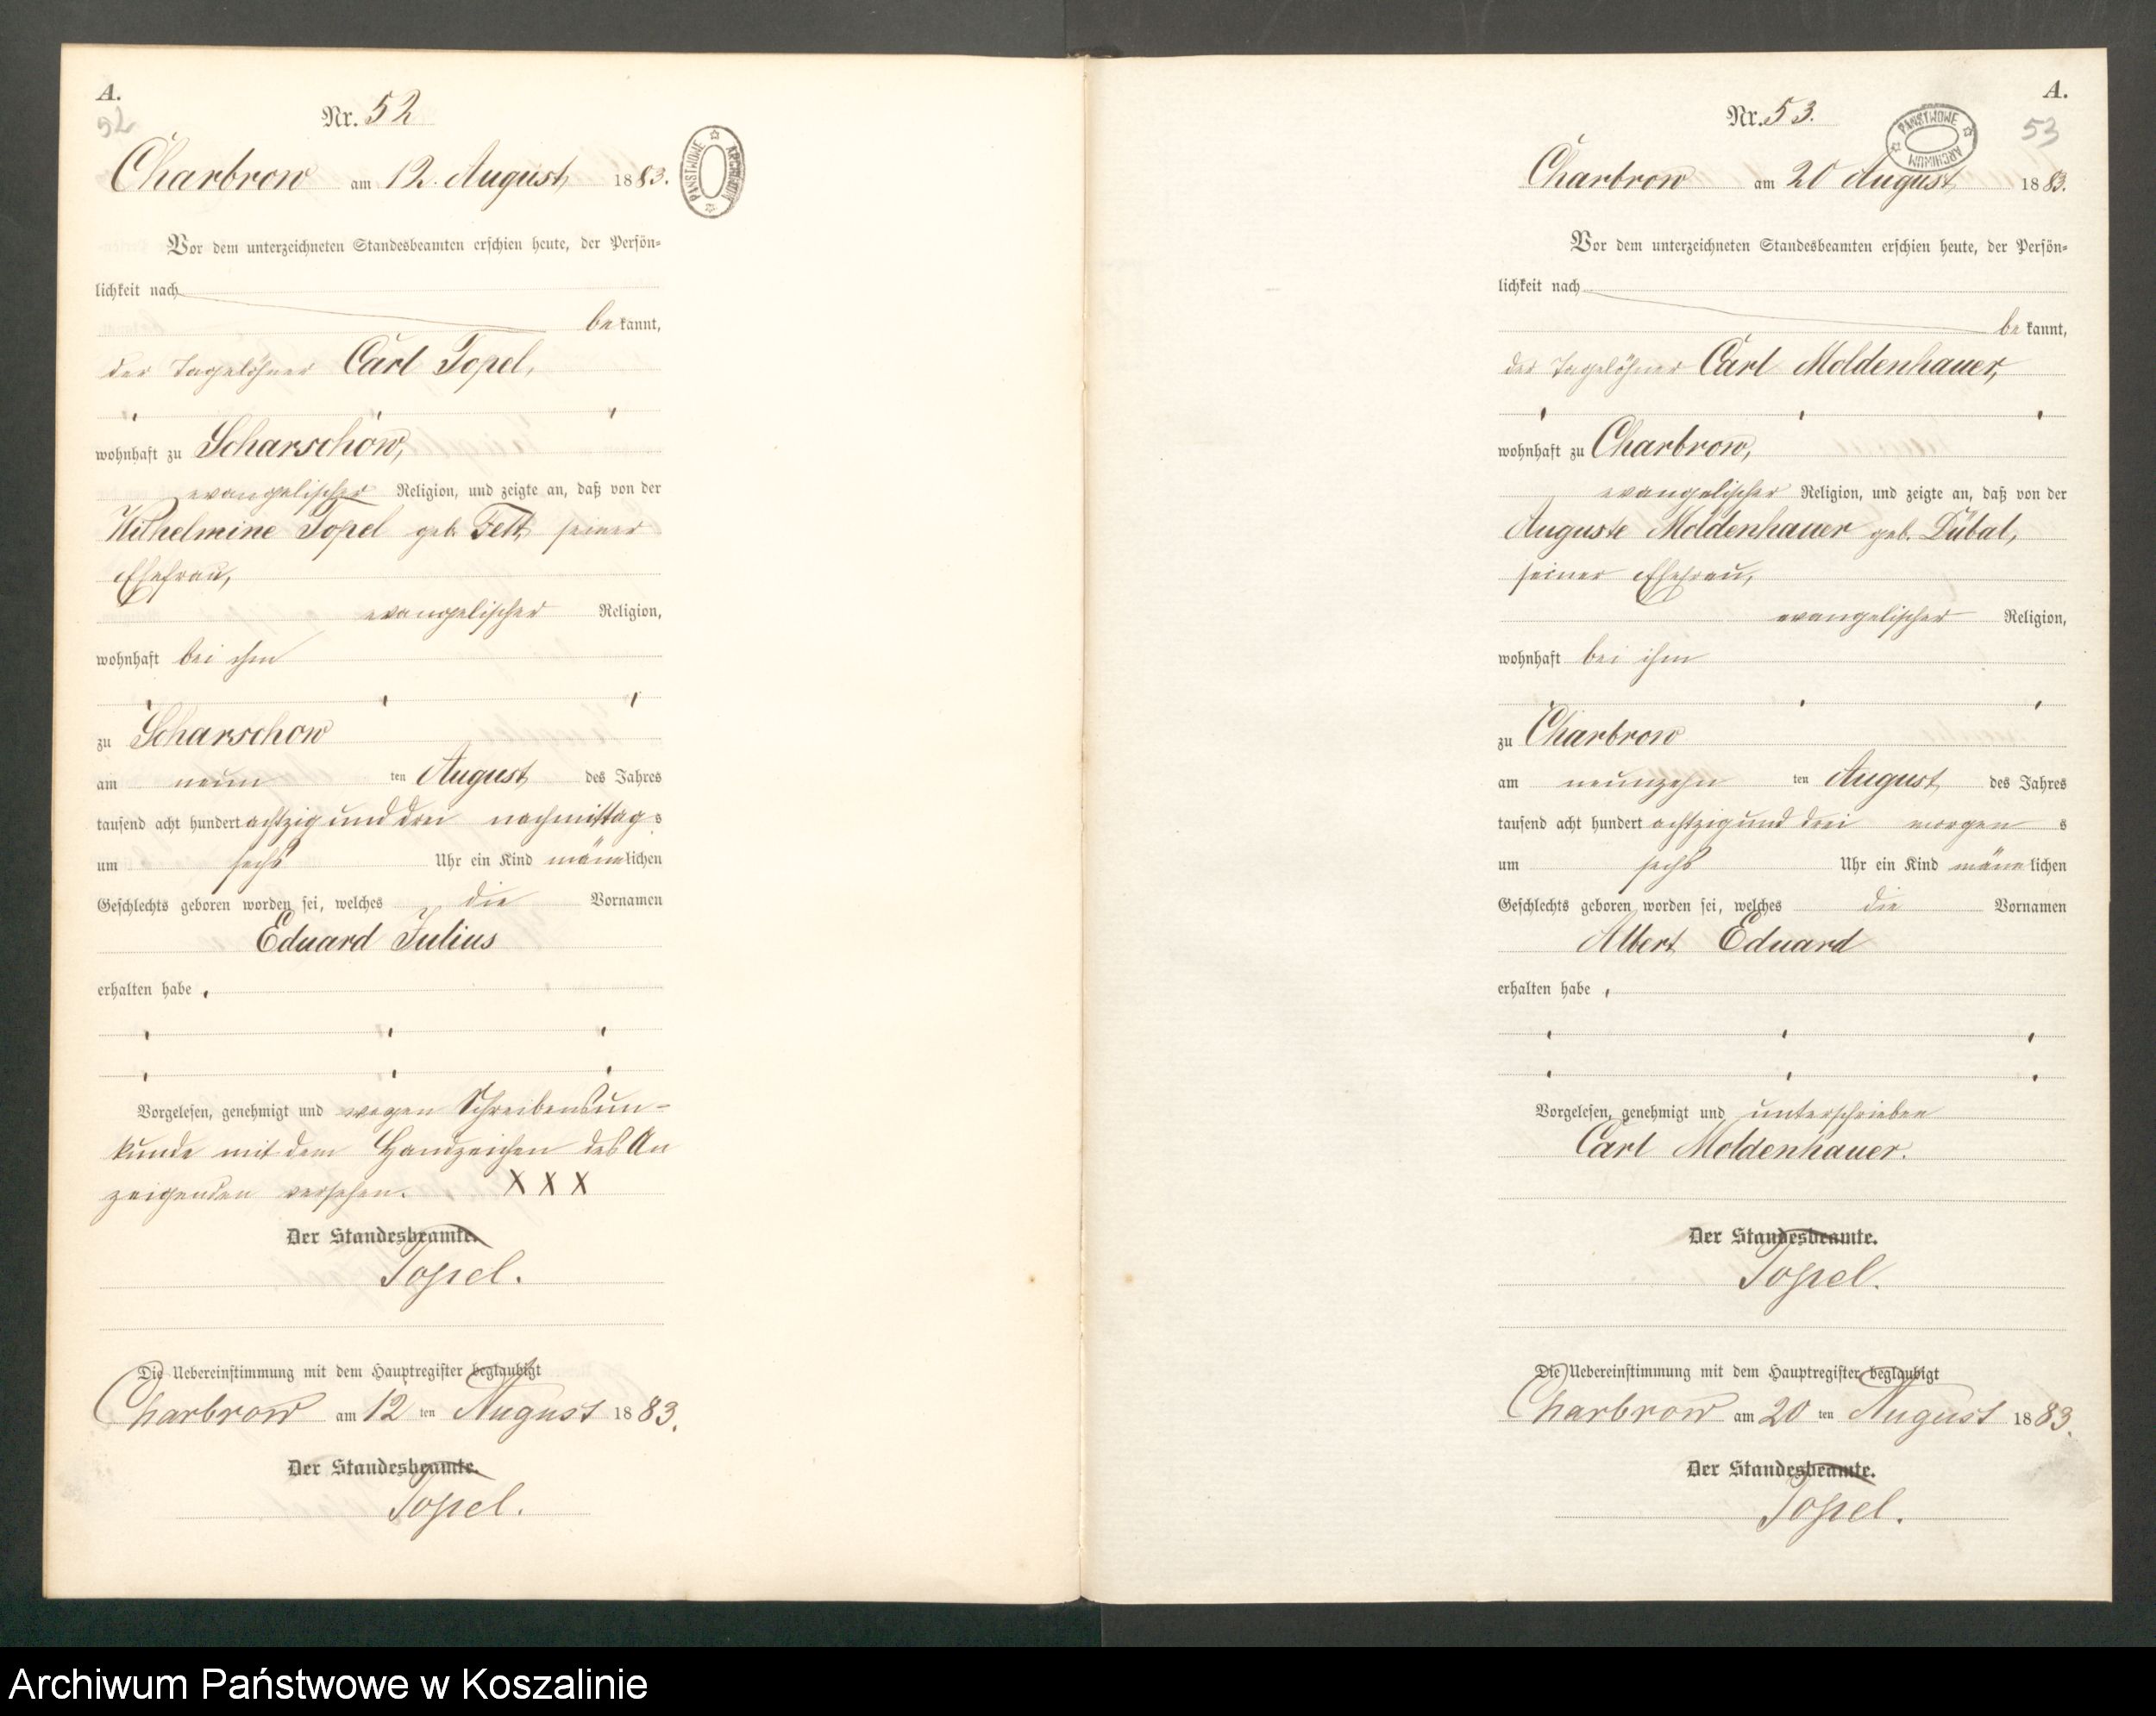 A.
52
Nr. 52
Charbrow am 12. August 1883.
PAŃSTWOWE ARCHIWUM
Vor dem unterzeichneten Standesbeamten erschien heute, der Persön-
lichkeit nach
bekannt,
der Tagelöhner Carl Topel,
wohnhaft zu Scharschow,
evangelischer Religion, und zeigte an, daß von der
Wilhelmine Topel geb. Fett, seiner
Ehefrau,
evangelischer Religion,
wohnhaft bei ihm
zu Scharschow
am neun ten August des Jahres
tausend acht hundert achtzig und drei nachmittags
um sechs Uhr ein Kind männlichen
Geschlechts geboren worden sei, welches die Vornamen
Eduard Julius
erhalten habe.
Vorgelesen, genehmigt und wegen Schreibensun-
kunde mit dem Handzeichen des An
zeigenden versehen. X X X
Der Standesbeamte.
Topel.
Die Uebereinstimmung mit dem Hauptregister beglaubigt
Charbrow am 12 ten August 1883.
Der Standesbeamte.
Topel.
A.
53
Nr. 53.
PAŃSTWOWE ARCHIWUM
Charbrow am 20 August 1883.
Vor dem unterzeichneten Standesbeamten erschien heute, der Persön-
lichkeit nach
bekannt,
der Tagelöhner Carl Moldenhauer,
wohnhaft zu Charbrow,
evangelischer Religion, und zeigte an, daß von der
Auguste Moldenhauer geb. Dübal,
seiner Ehefrau,
evangelischer Religion,
wohnhaft bei ihm
zu Charbrow
am neunzehn ten August des Jahres
tausend acht hundert achtzig und drei morgens
um sechs Uhr ein Kind männlichen
Geschlechts geboren worden sei, welches die Vornamen
Albert Eduard
erhalten habe.
Vorgelesen, genehmigt und unterschrieben
Carl Moldenhauer.
Der Standesbeamte.
Topel.
Die Uebereinstimmung mit dem Hauptregister beglaubigt
Charbrow am 20 ten August 1883.
Der Standesbeamte.
Topel.
Archiwum Państwowe w Koszalinie